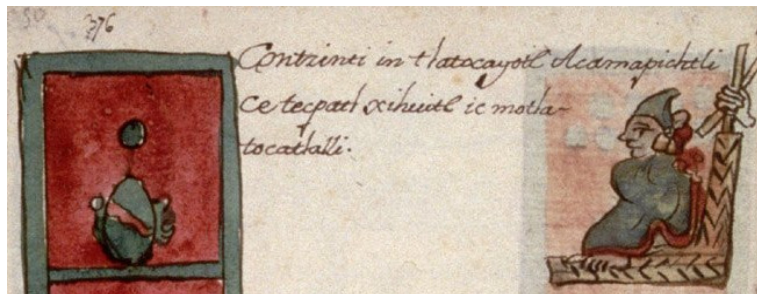 50
376
Contzinti in tlatocayotl Acamapichtli
ce tecpatl xihuitl ic motla-
tocatlalli.